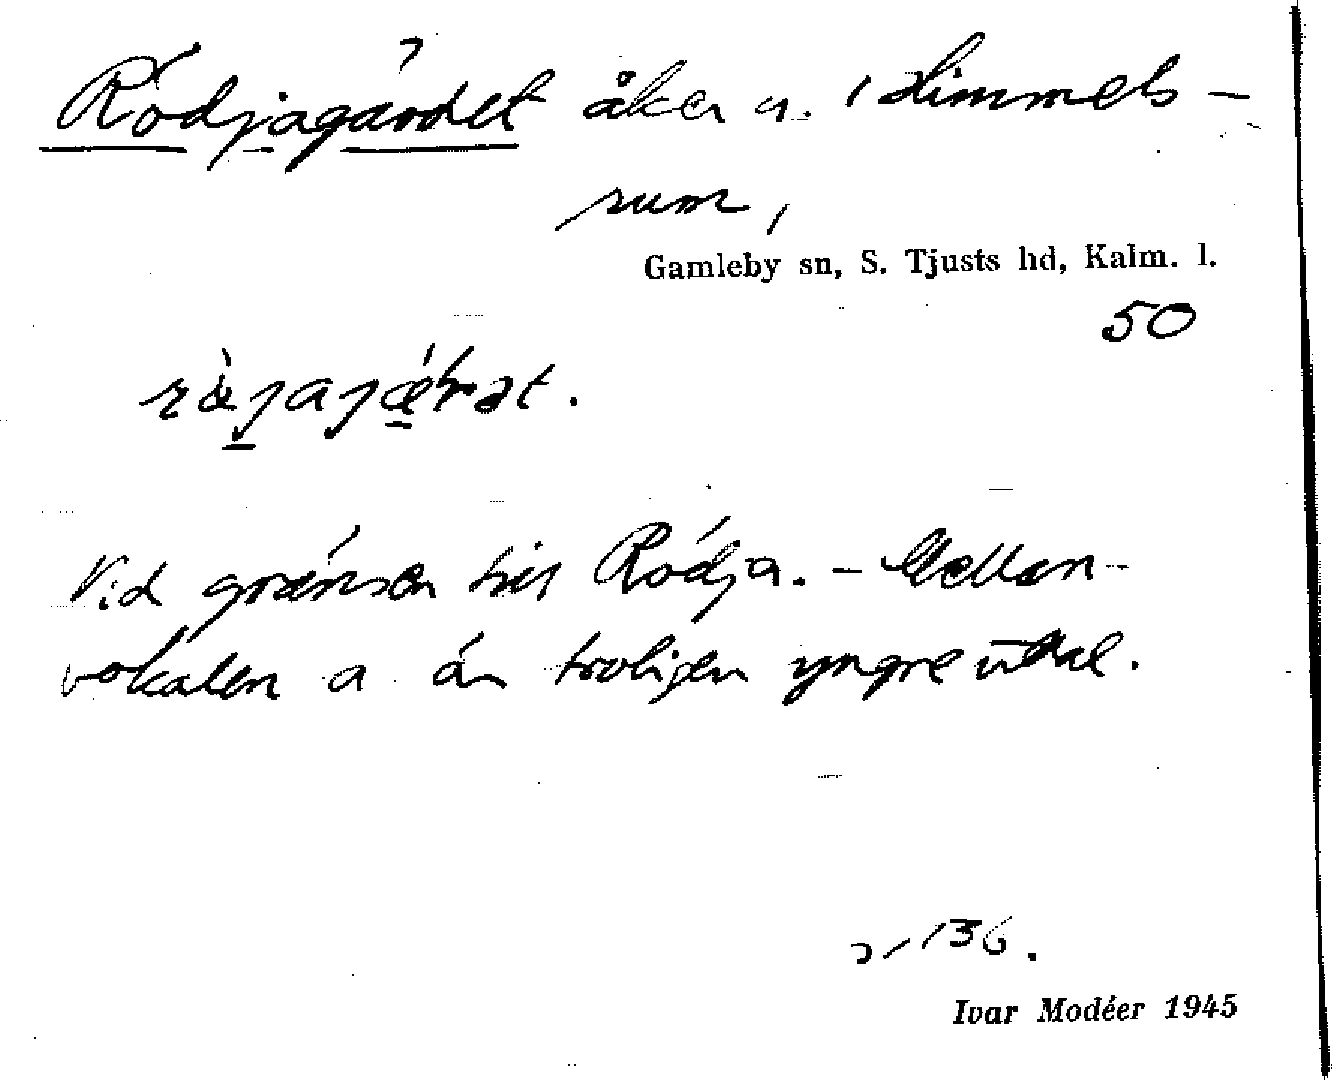 Rödjagärdet åker u. Himmels-
rum,
Gamleby sn, S. Tjusts hd, Kalm. l.
50
Vid gränsen till Rödja. - Mellan-
vokalen a är troligen yngre uttal.
136.
Ivar Modéer 1945